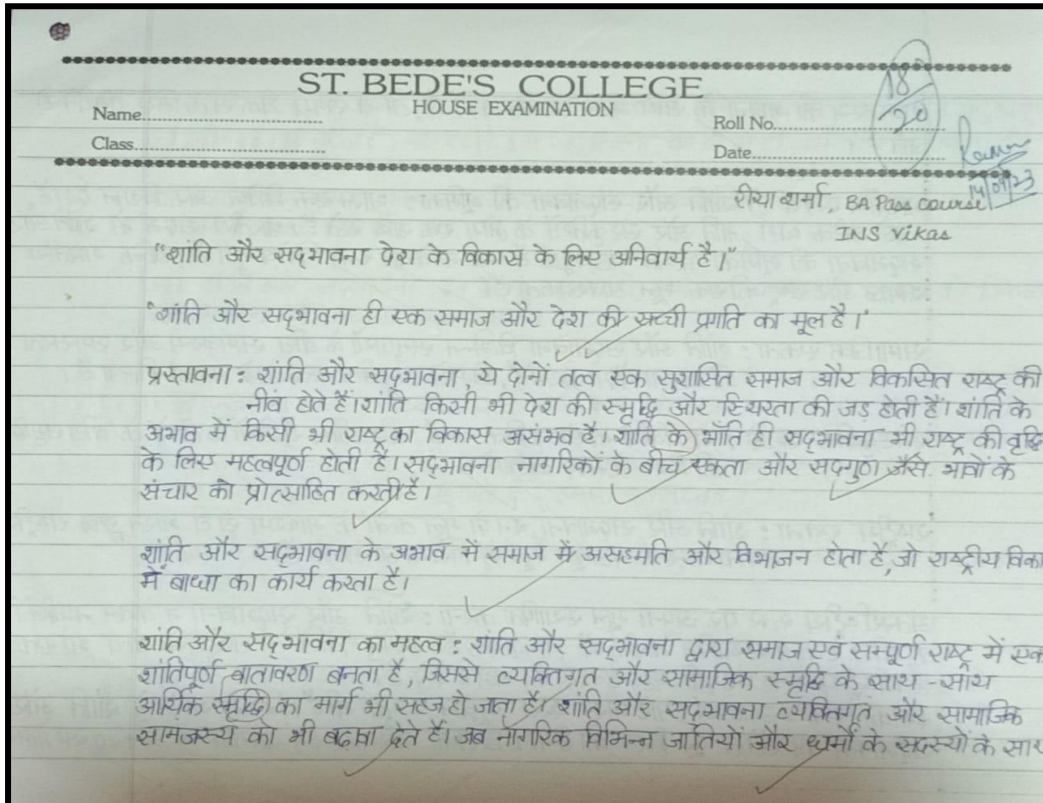 ST. BEDE'S COLLEGE
HOUSE EXAMINATION
Name..............................
Roll No.........................
Class..............................
Date..............................
18/20
14/09/23
रीया शर्मा, BA Pass Course
INS Vikas
"शांति और सद्‌भावना देश के विकास के लिए अनिवार्य है।"
"शांति और सद्‌भावना ही एक समाज और देश की सच्ची प्रगति का मूल है।"
प्रस्तावना : शांति और सद्‌भावना, ये दोनों तत्व एक सुशासित समाज और विकसित राष्ट्र की
नींव होते हैं। शांति किसी भी देश की स्मृद्धि और स्थिरता की जड़ होती है। शांति के
अभाव में किसी भी राष्ट्र का विकास असंभव है। शांति के भाँति ही सद्‌भावना भी राष्ट्र की वृद्धि
के लिए महत्वपूर्ण होती है। सद्‌भावना नागरिकों के बीच एकता और सद्‌गुण जैसे भावों के
संचार को प्रोत्साहित करती है।
शांति और सद्‌भावना के अभाव में समाज में असहमति और विभाजन होता है, जो राष्ट्रीय विका
में बाधा का कार्य करता है।
शांति और सद्‌भावना का महत्व : शांति और सद्‌भावना द्वारा समाज एवं सम्पूर्ण राष्ट्र में एक
शांतिपूर्ण वातावरण बनता है, जिससे व्यक्तिगत और सामाजिक स्मृद्धि के साथ-साथ
आर्थिक स्मृद्धि का मार्ग भी सहज हो जाता है। शांति और सद्‌भावना व्यक्तिगत और सामाजिक
सामंजस्य को भी बढ़ावा देते हैं। जब नागरिक विभिन्न जातियों और धर्मों के सदस्यों के साथ